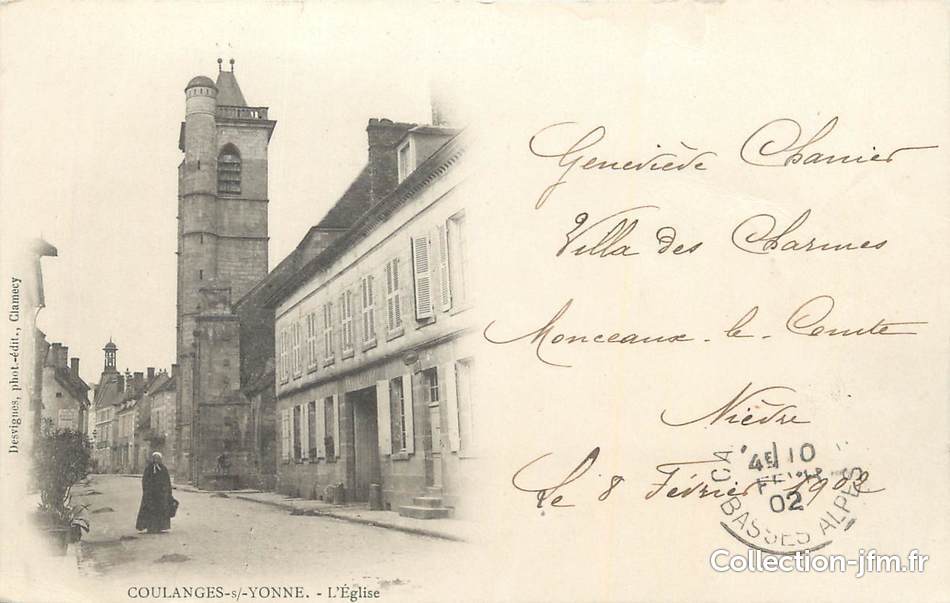 Desvignes, phot.-édit., Clamecy
COULANGES-s/-YONNE. - L'Église
Geneviève Chanier
Villa des Charmes
Monceaux-le-Comte
Nièvre
Le 8 Février 1902
4E/10
02
BASSES ALPES
Collection-jfm.fr